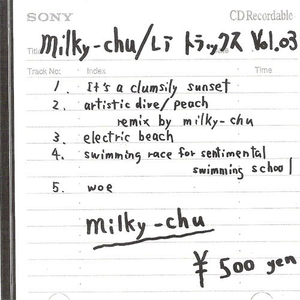 SONY
CD Recordable
milky-chu/Li トラックス Vol.03
Track No. Index Time
1. It's a clumsily sunset
2. artistic dive/peach
remix by milky-chu
3. electric beach
4. swimming race for sentimental
swimming school
5. woe
milky-chu
¥500 yen